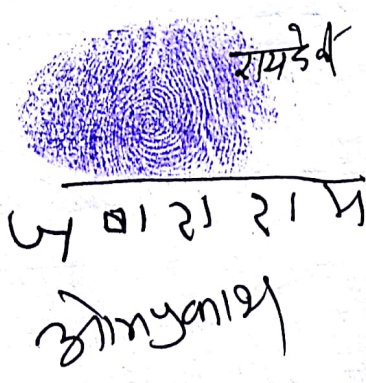 रायदेवी
जबाराराम
ओमप्रकाश